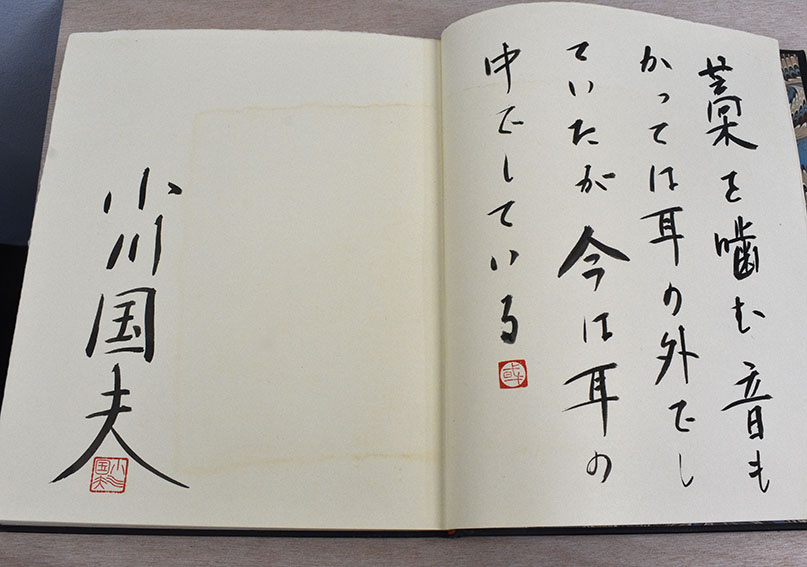 藁を噛む音も
かつては耳の外でし
ていたが今は耳の
中でしている
小川国夫
小川国夫